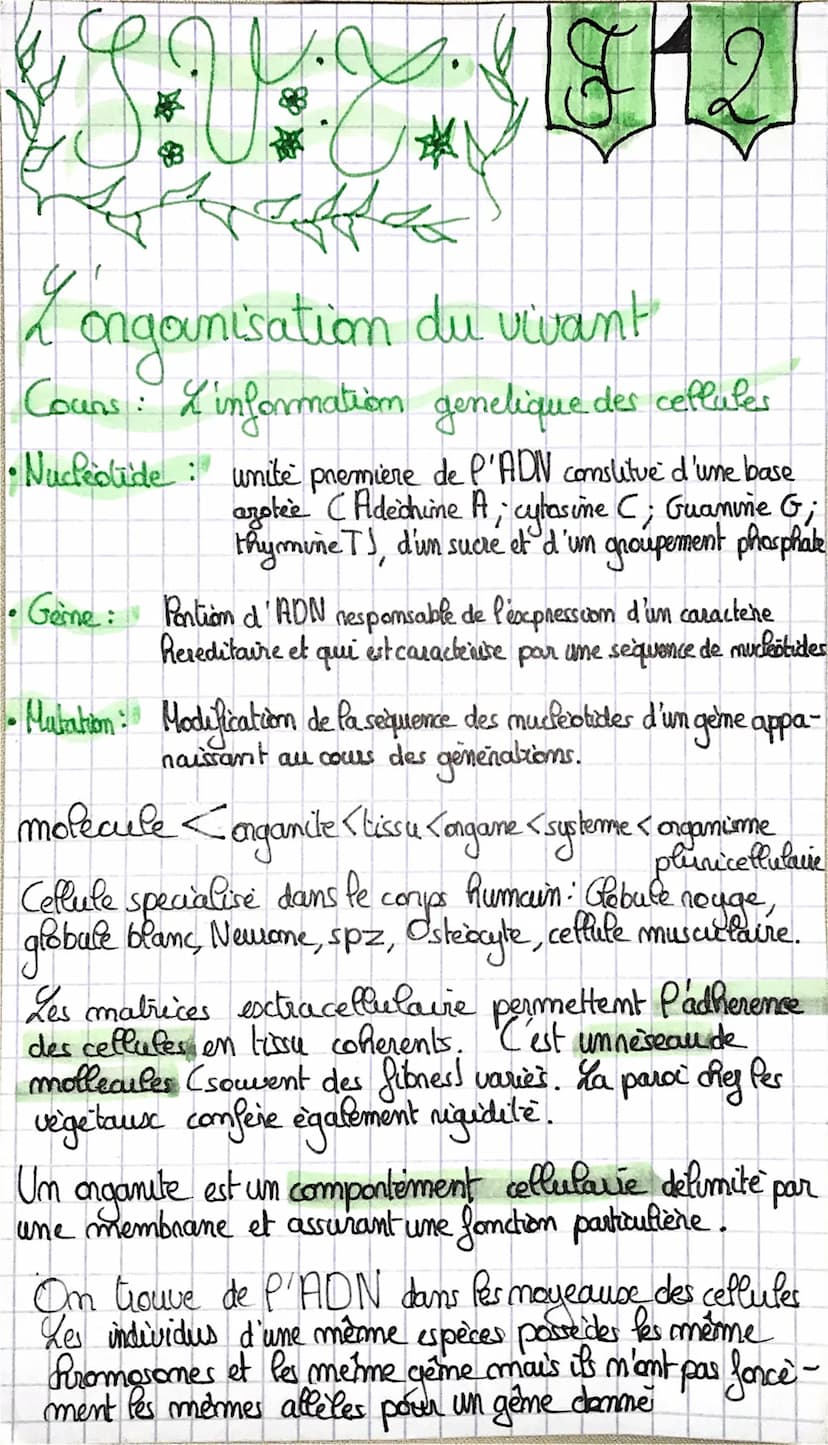 S.V.T.
F 2
L'organisation du vivant
Cours : L'information genetique des cellules
• Nucléotide : unité première de l'ADN constitué d'une base
azotée (Adéchine A ; cytosine C ; Guanine G ;
thymine T), d'un sucre et d'un groupement phosphate
• Gène : Portion d'ADN responsable de l'expression d'un caractère
hereditaire et qui est caractérisé par une séquence de nucléotides
• Mutation : Modification de la séquence des nucléotides d'un gène appa-
raissant au cours des générations.
molecule < organite < tissu < organe < systeme < organisme
pluricellulaire
Cellule spécialisé dans le corps humain : Globule rouge,
globule blanc, Neurone, spz, Ostéocyte, cellule musculaire.
Les matrices extracellulaire permettent l'adherence
des cellules en tissu coherents. C'est un réseau de
mollecules (souvent des fibres) variés. La paroi chez les
végétaux confère également rigidité.
Un organite est un comportément cellulaire délimité par
une membrane et assurant une fonction particulière.
On trouve de l'ADN dans les noyeaux des cellules
Les individus d'une même espèces possèdes les même
chromosomes et les même gène mais ils n'ont pas forcé-
ment les mêmes allèles pour un gène donné